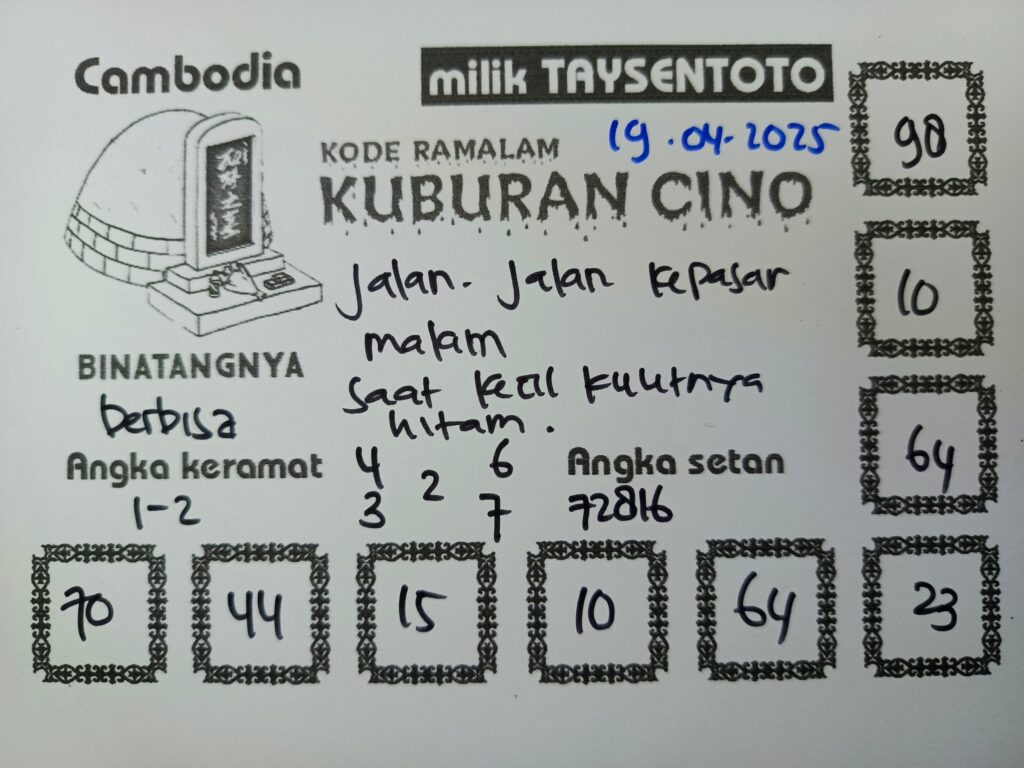 Cambodia
milik TAYSENTOTO
19.04.2025
KODE RAMALAM
KUBURAN CINO
98
10
64
Jalan. Jalan kepasar
malam
saat kecil kulitnya
hitam.
BINATANGNYA
berbisa
Angka keramat
1-2
4 6
2
3 7
Angka setan
72816
70 44 15 10 64 23